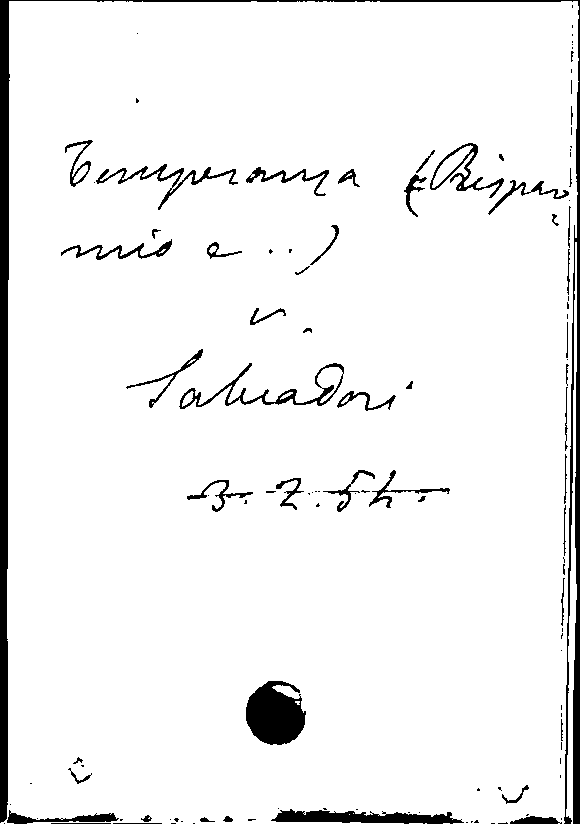 Temperanza (Rispar
mio e ..)
v.
Salvadori
3.2.54.